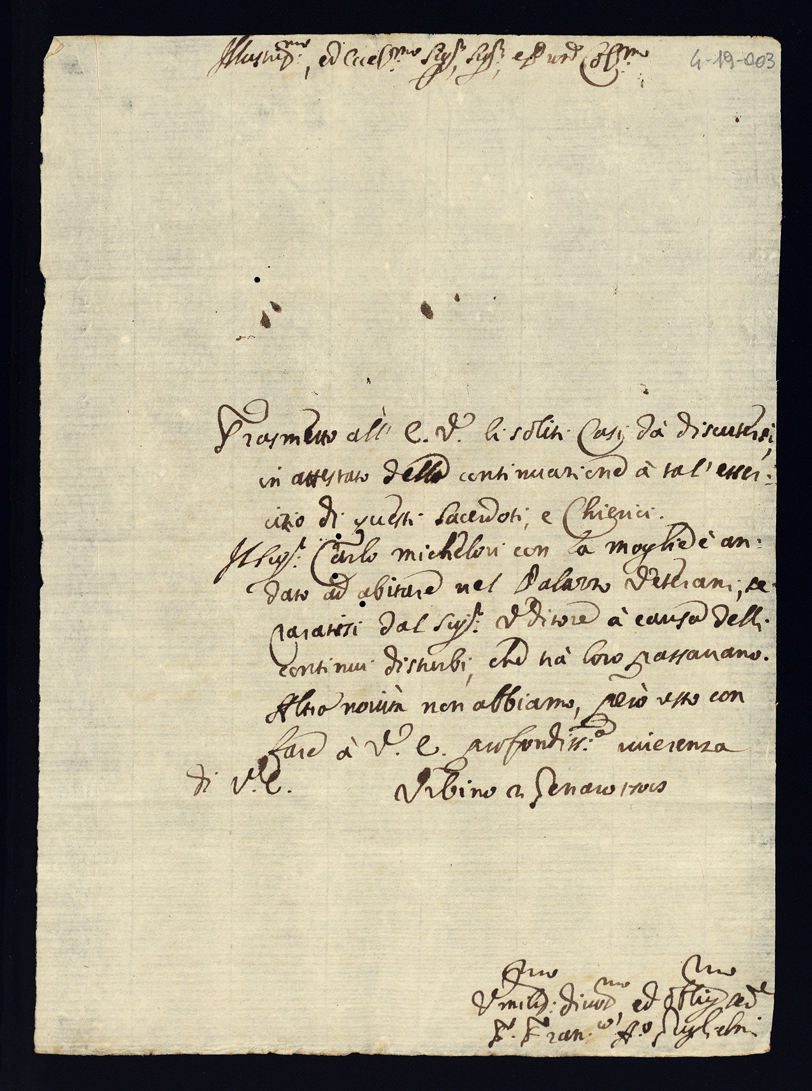 Illustr.mo, ed Eccel.mo Sig.r, Sig.r, e P.rone Col.mo
4-19-003
Trasmetto all' E. V. li soliti Casi dà discutersi,
in attestato della continuazione à tal' eser:
cizio di questi Sacerdoti, e Chierici.
Il Sig.r Carlo Michelori con la moglie è an:
dato ad abitare nel Palazzo Veterani, se:
paratisi dal Sig.r Uditore à causa delli
continui disturbi, che trà loro passavano.
Altra novità non abbiamo, però resto con
fare à V. E. profondiss.a riverenza
di V. E. Urbino 2 Genaro
Umiliss.mo divot.mo ed obblig.mo
F. Fran.co A.o Guglielmi